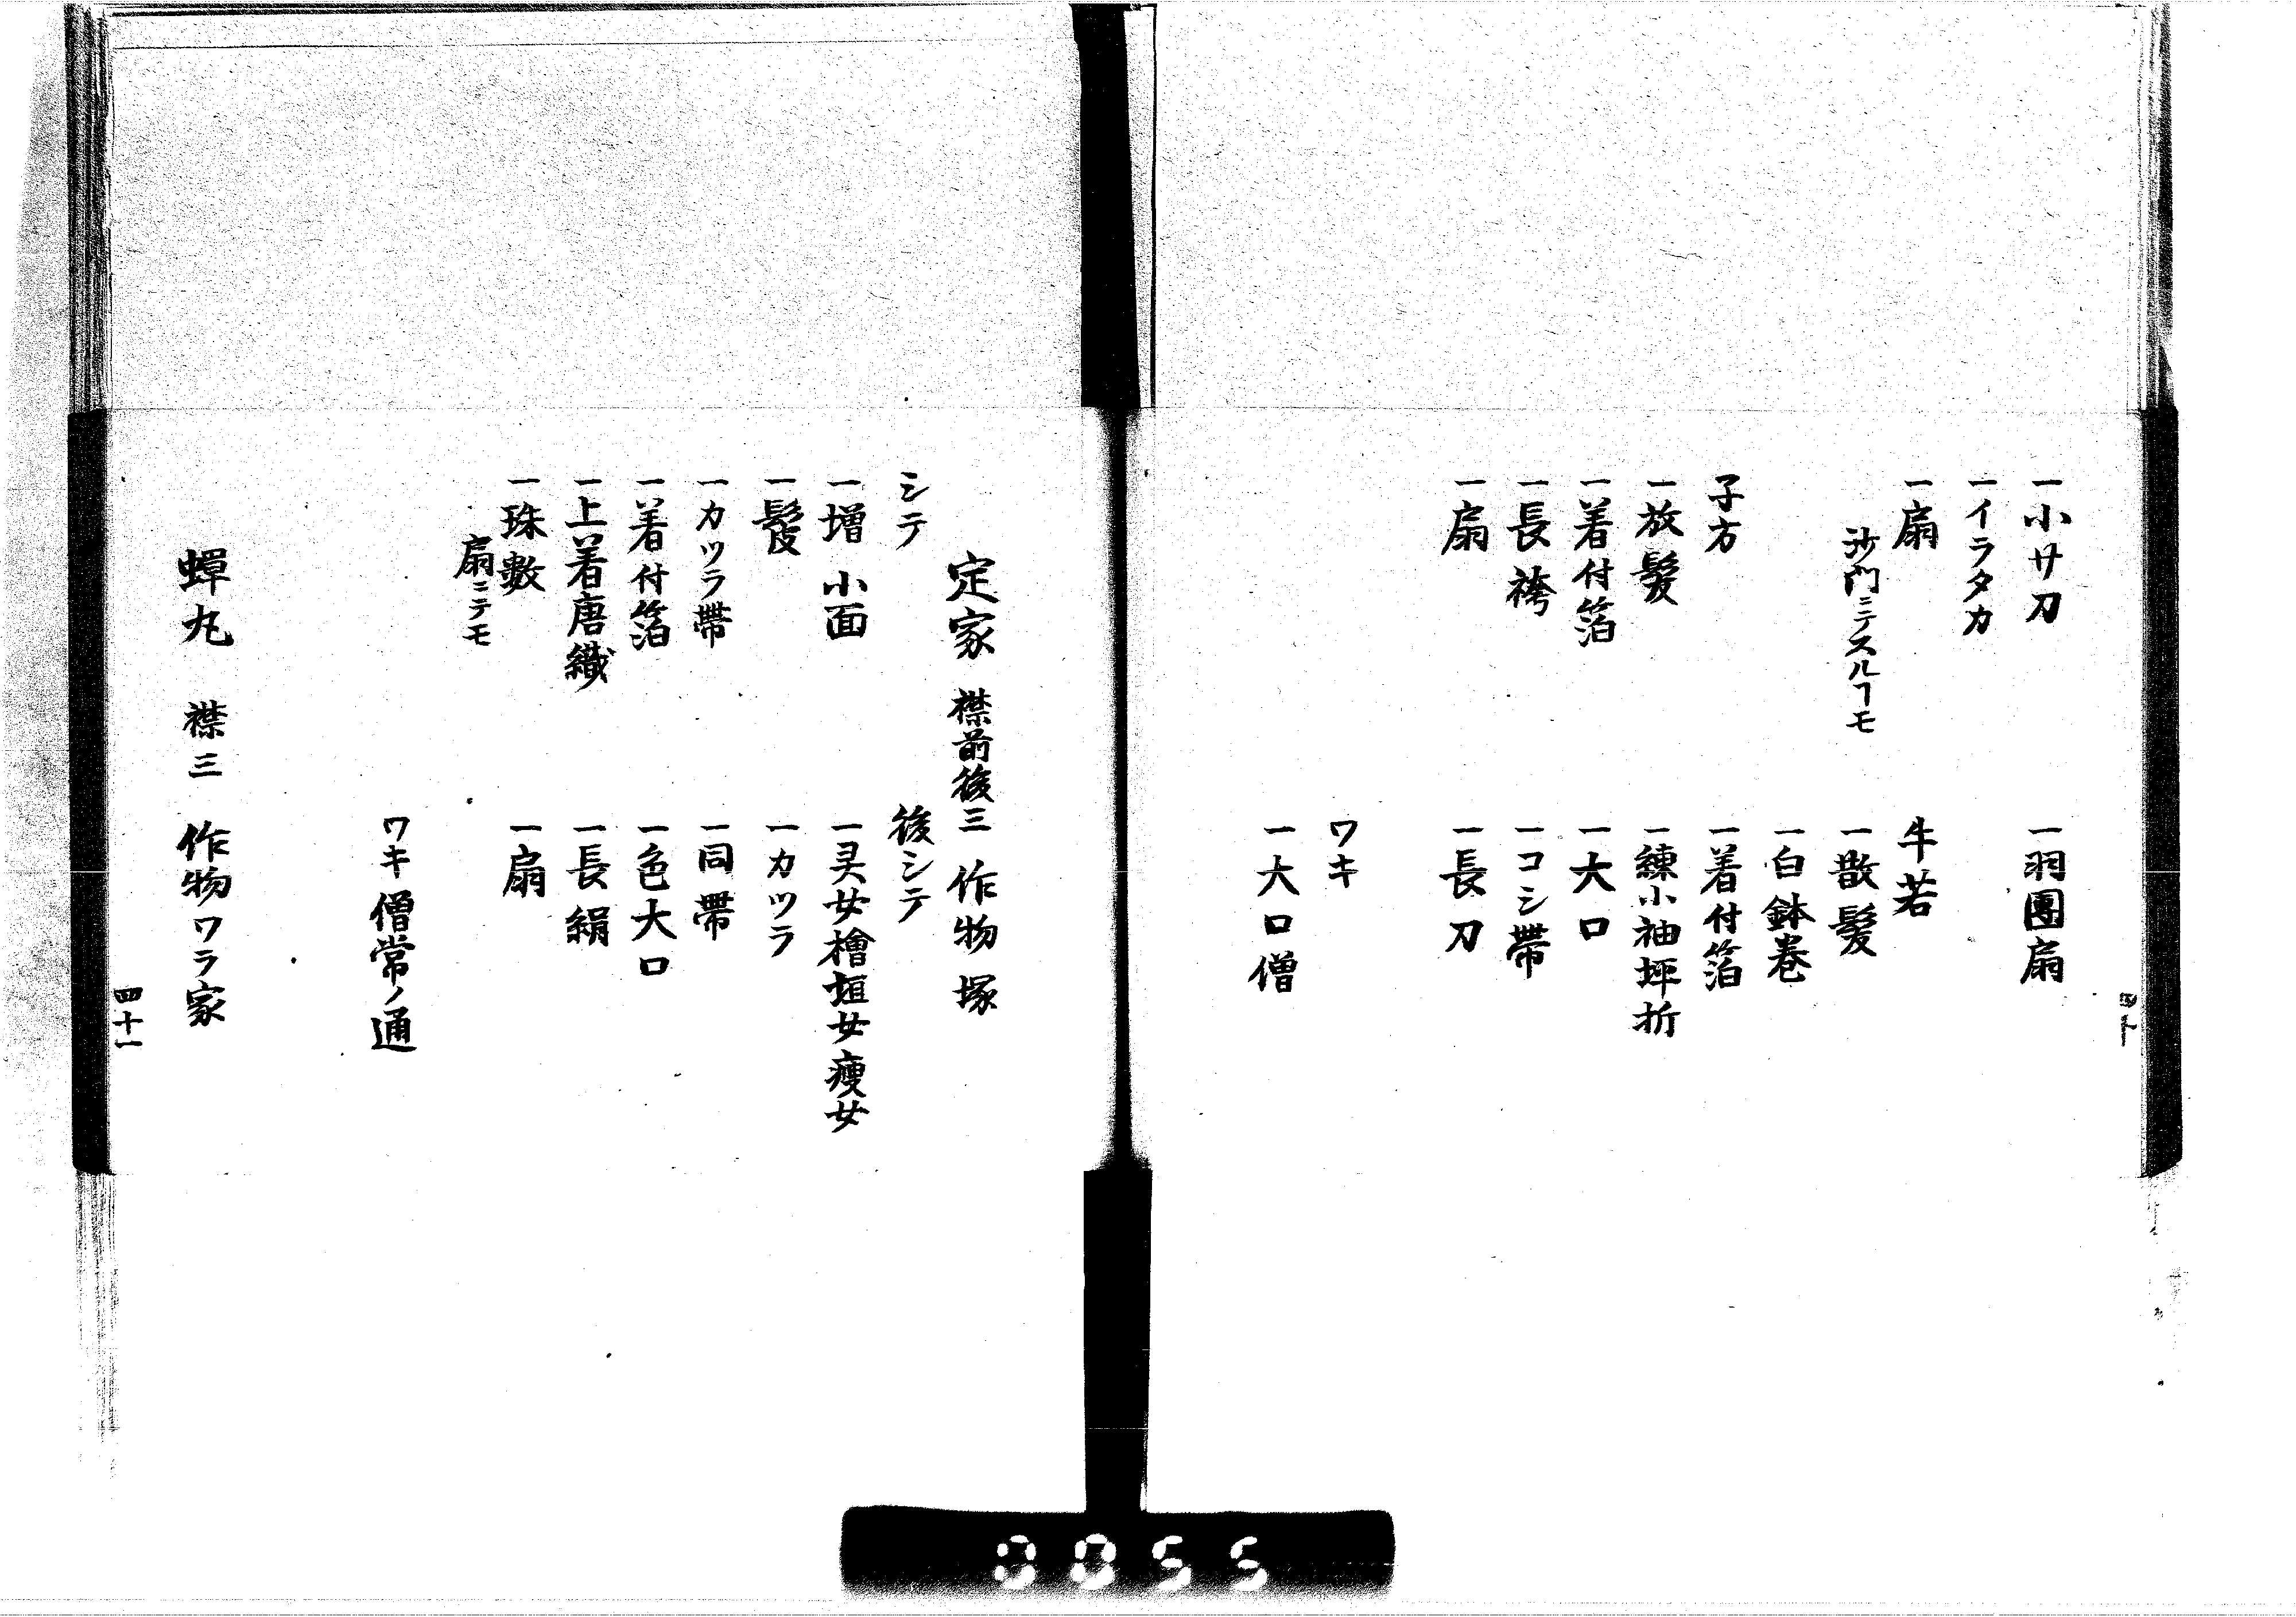 一小サ刀
一イラタカ
一扇
沙門ニテスルヿモ
子方
一放髪
一着付箔
一長袴
一扇
一羽團扇
牛若
一散髪
一白鉢巻
一着付箔
一練小袖坪折
一大口
一コシ帯
一長刀
ワキ
一大口僧
定家 襟前後三 作物塚
シテ
一増 小面
一鬘
一カツラ帯
一着付箔
一上着唐織
一珠數
扇ニテモ
後シテ
一灵女檜垣女瘦女
一カツラ
一同帯
一色大口
一長絹
一扇
ワキ僧常ノ通
蟬丸 襟三 作物ワラ家
四十一
0055